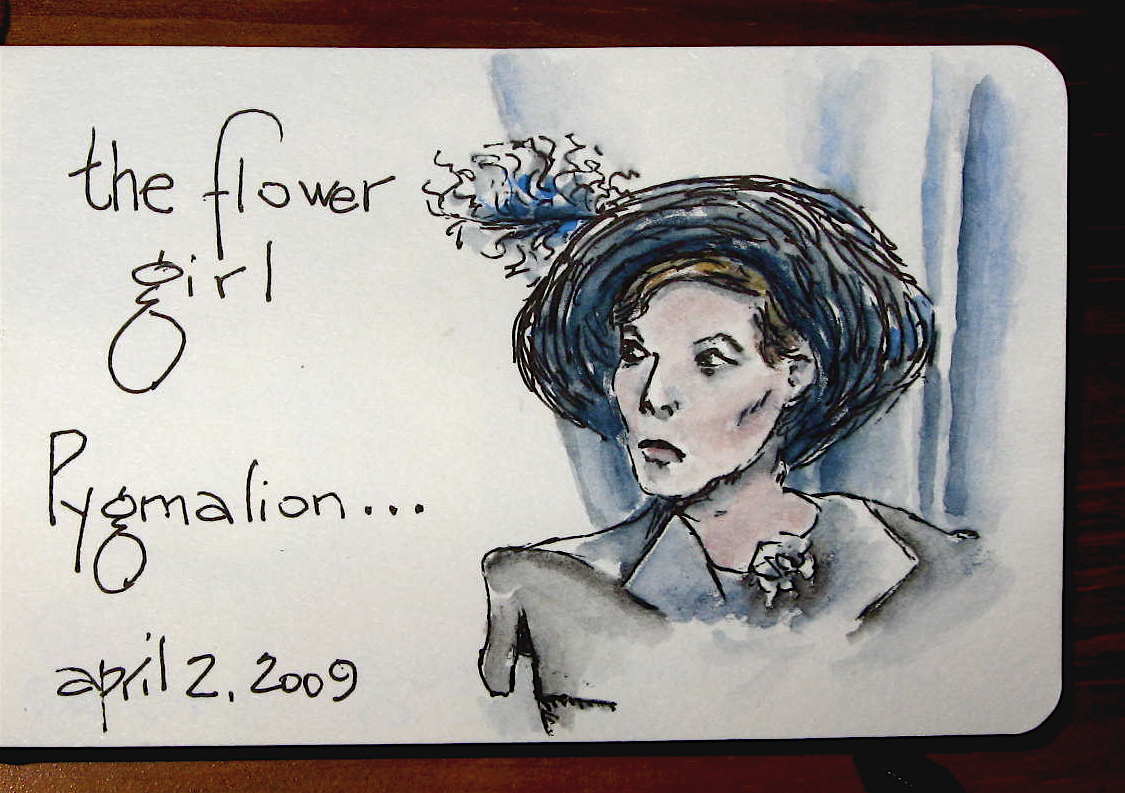 the flower
girl
Pygmalion...
april 2, 2009